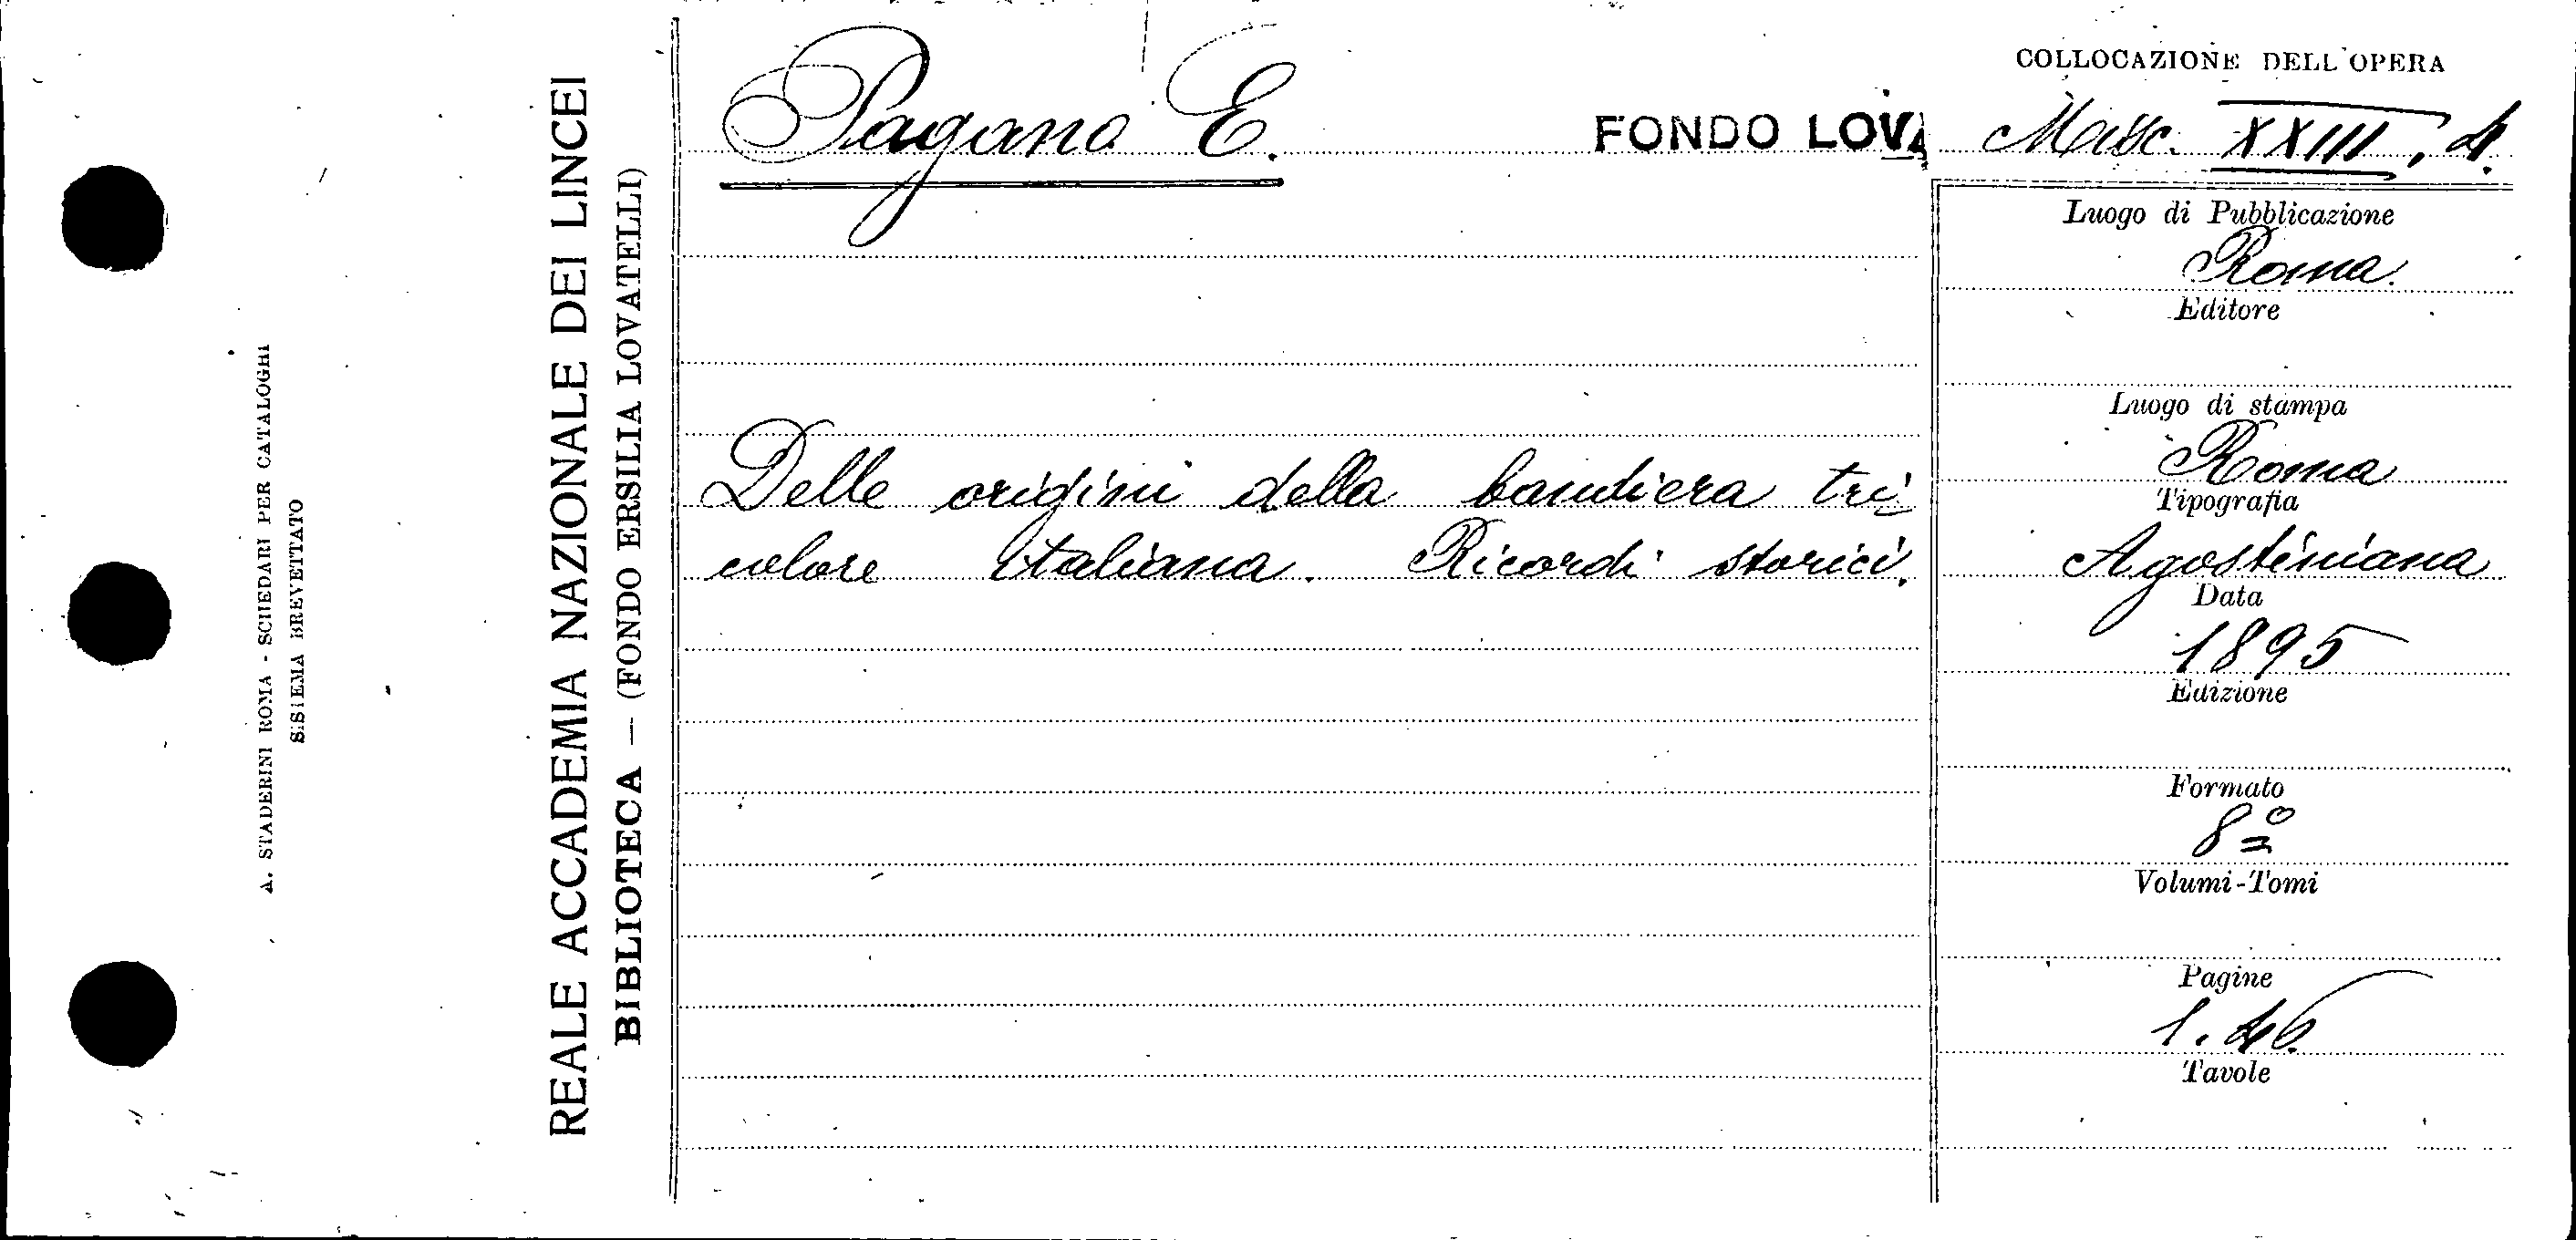 A. STADERINI ROMA - SCHEDARI PER CATALOGHI
SISTEMA BREVETTATO
REALE ACCADEMIA NAZIONALE DEI LINCEI
BIBLIOTECA — (FONDO ERSILIA LOVATELLI)
Pagano E.
FONDO LOVA
Delle origini della bandiera tri-
colore italiana. Ricordi storici.
COLLOCAZIONE DELL'OPERA
Misc. XXIII, 4.
Luogo di Pubblicazione
Roma.
Editore
Luogo di stampa
Roma
Tipografia
Agostiniana
Data
1895
Edizione
Formato
8º
Volumi-Tomi
Pagine
1.46
Tavole